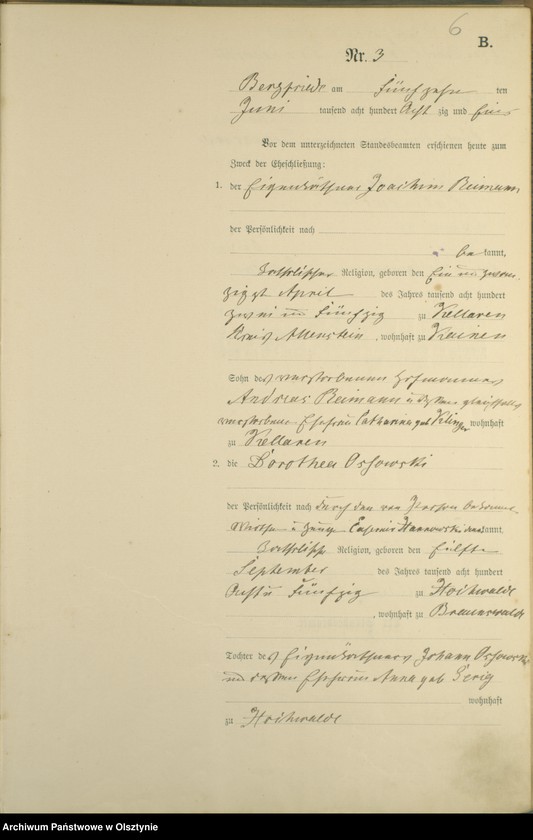 6
B.
Nr. 3
Bergfriede am Fünfzehn ten
Juni tausend acht hundert Acht zig und Eins
Vor dem unterzeichneten Standesbeamten erschienen heute zum
Zweck der Eheschließung:
1. der Eigenkäthner Joachim Reimann
der Persönlichkeit nach
be kannt,
katholischer Religion, geboren den Ein und zwan
zigst April des Jahres tausend acht hundert
zwei und Fünfzig zu Kellaren
Kreis Allenstein, wohnhaft zu
Sohn des verstorbenen
Andreas Reimann u dessen gleichfalls
verstorbene Ehefrau Catharina geb wohnhaft
zu Kellaren
2. die Dorothea Ossowski
der Persönlichkeit nach durch den von Person bekannten
u Zeug Casimir kannt,
katholisch Religion, geboren den
September des Jahres tausend acht hundert
Fünfzig zu
, wohnhaft zu Braunswalde
Tochter des Eigenkäthners Johann Ossowski
und dessen Ehefrau Anna geb
wohnhaft
zu
Archiwum Państwowe w Olsztynie